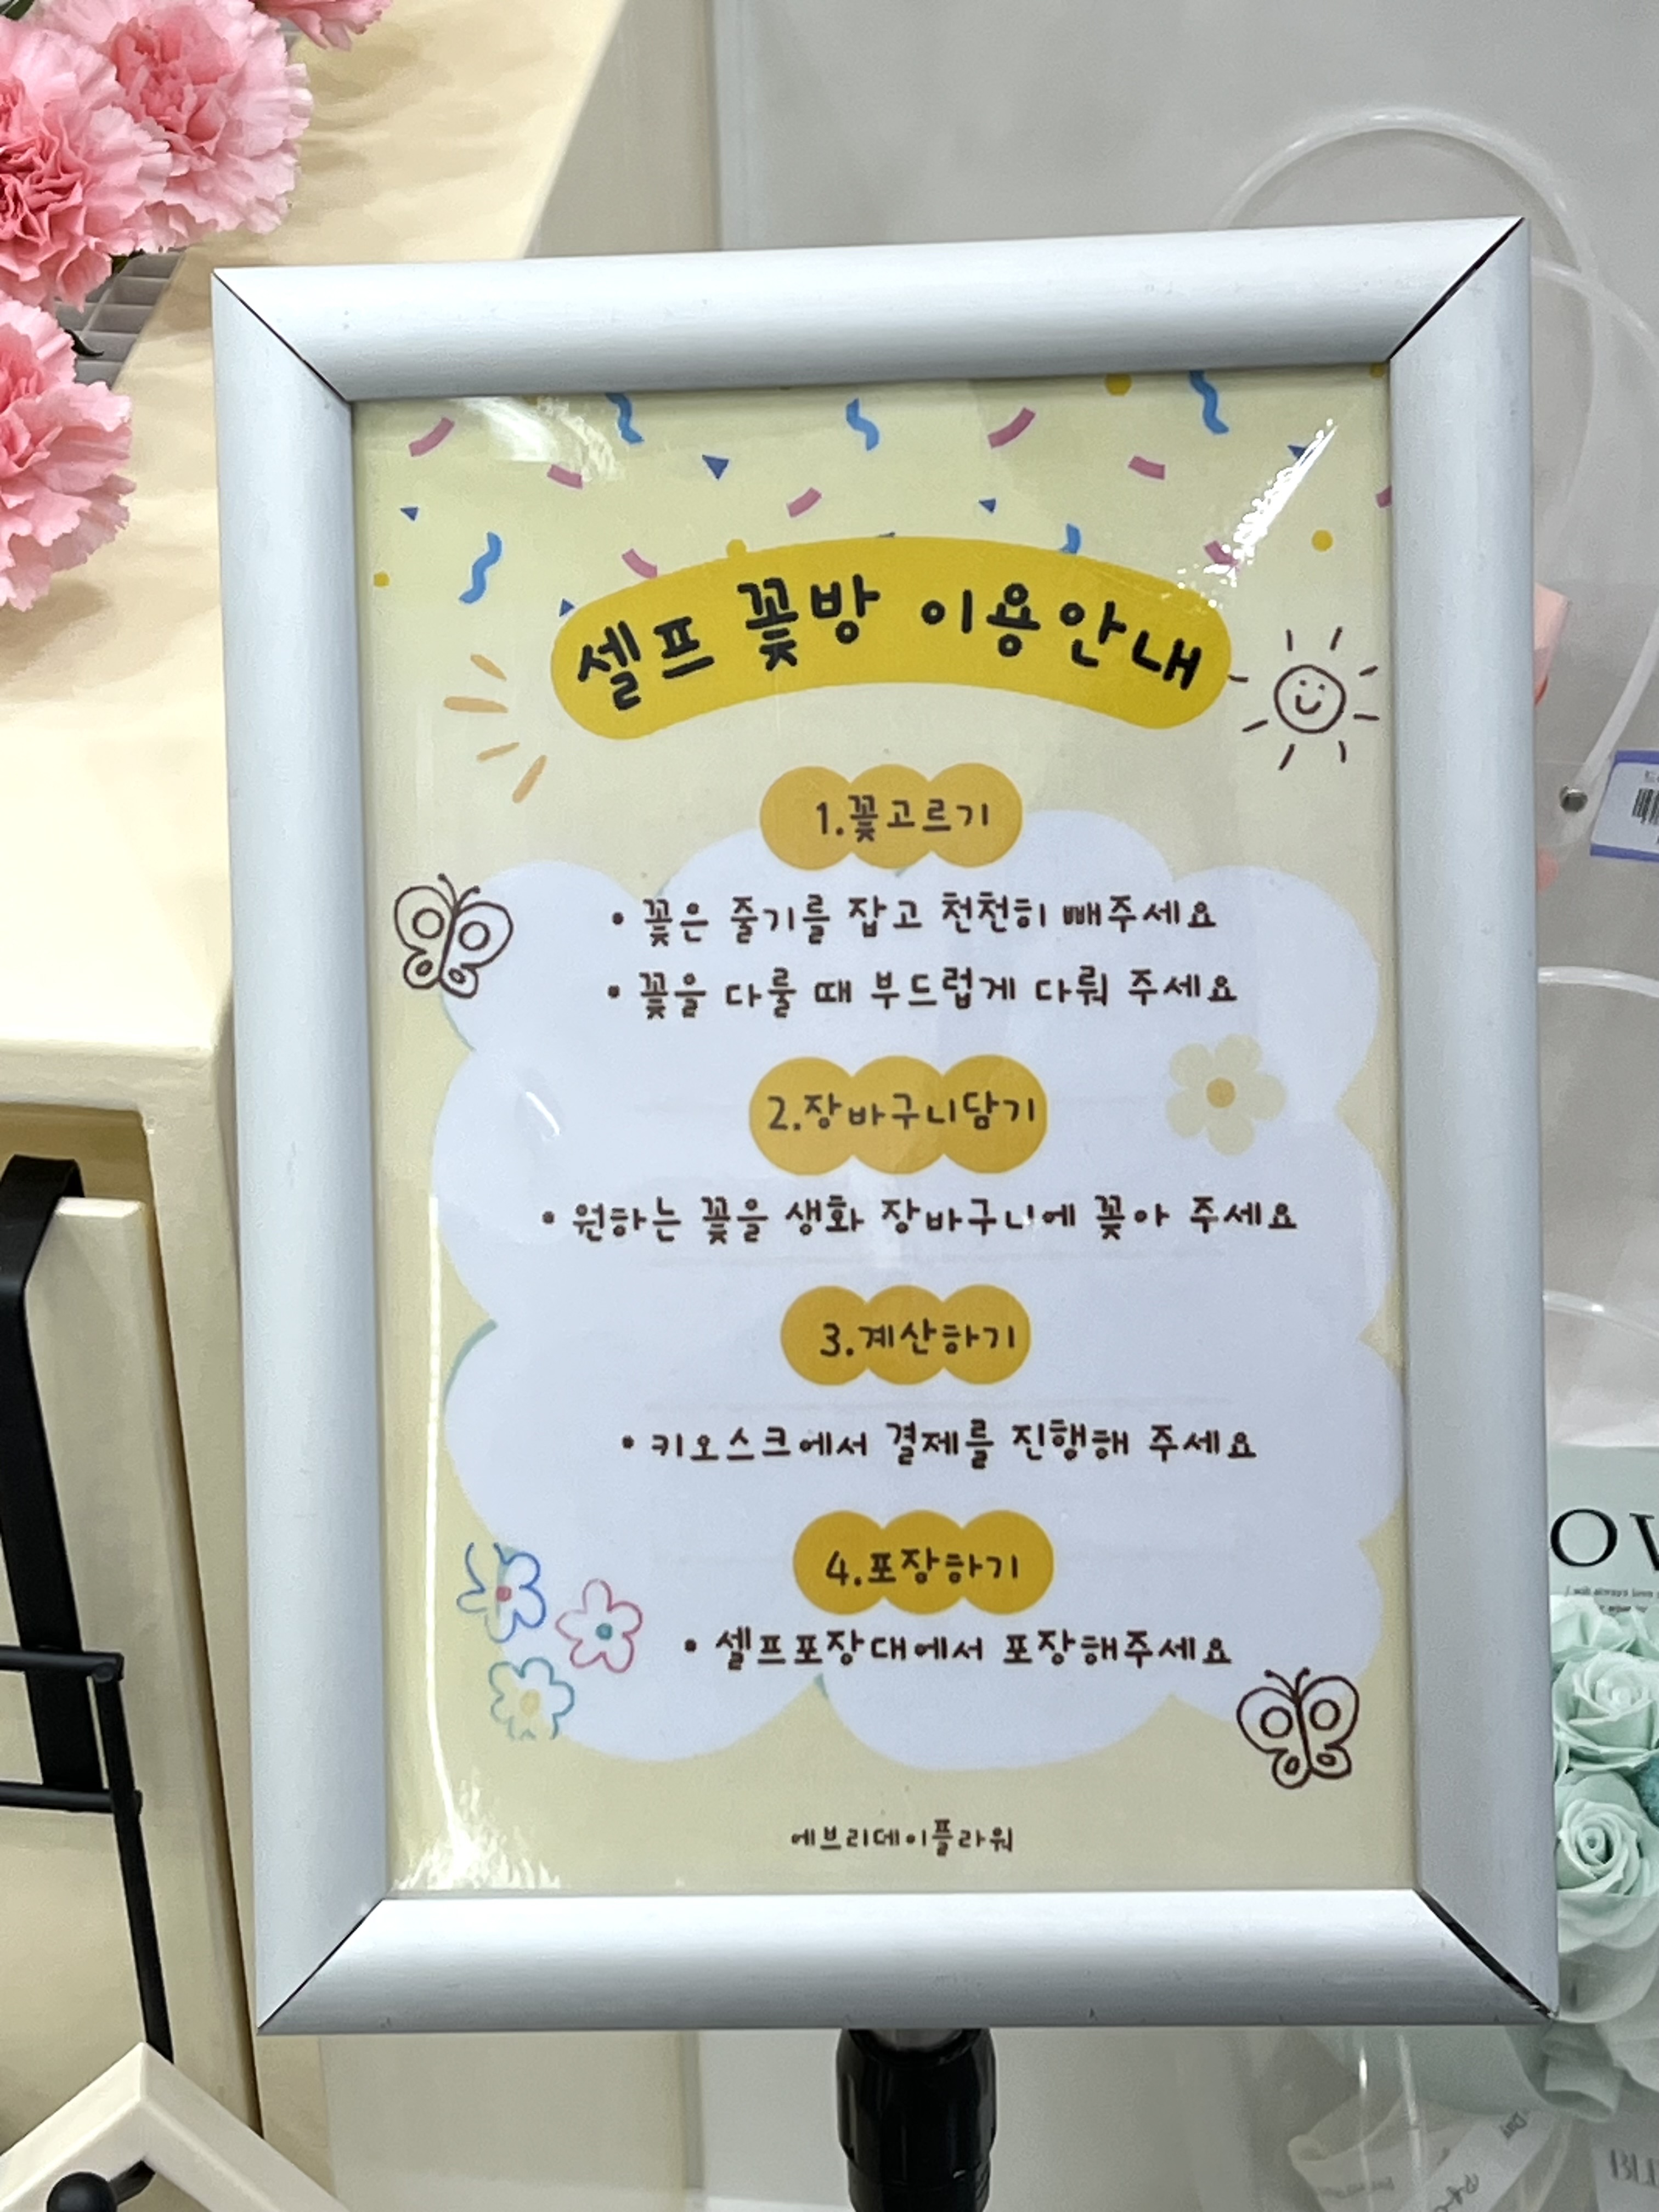 셀프 꽃방 이용안내
1.꽃고르기
• 꽃은 줄기를 잡고 천천히 빼주세요
• 꽃을 다룰 때 부드럽게 다뤄 주세요
2.장바구니담기
• 원하는 꽃을 생화 장바구니에 꽃아 주세요
3.계산하기
• 키오스크에서 결제를 진행해 주세요
4.포장하기
• 셀프포장대에서 포장해주세요
에브리데이플라워